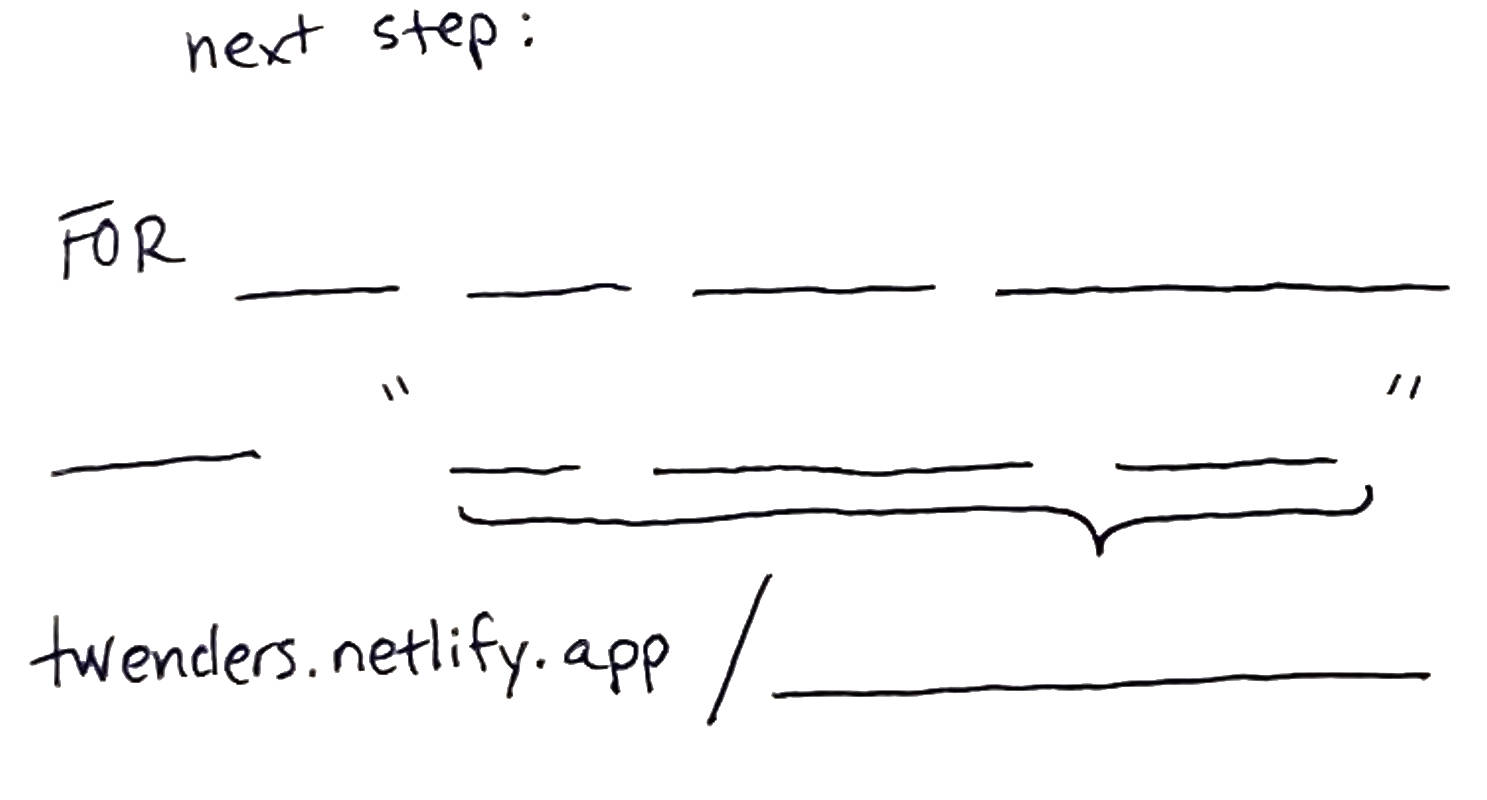 next step:
FOR ____ ____ ____ ____
____ " ____ ____ ____ "
twenders.netlify.app/____